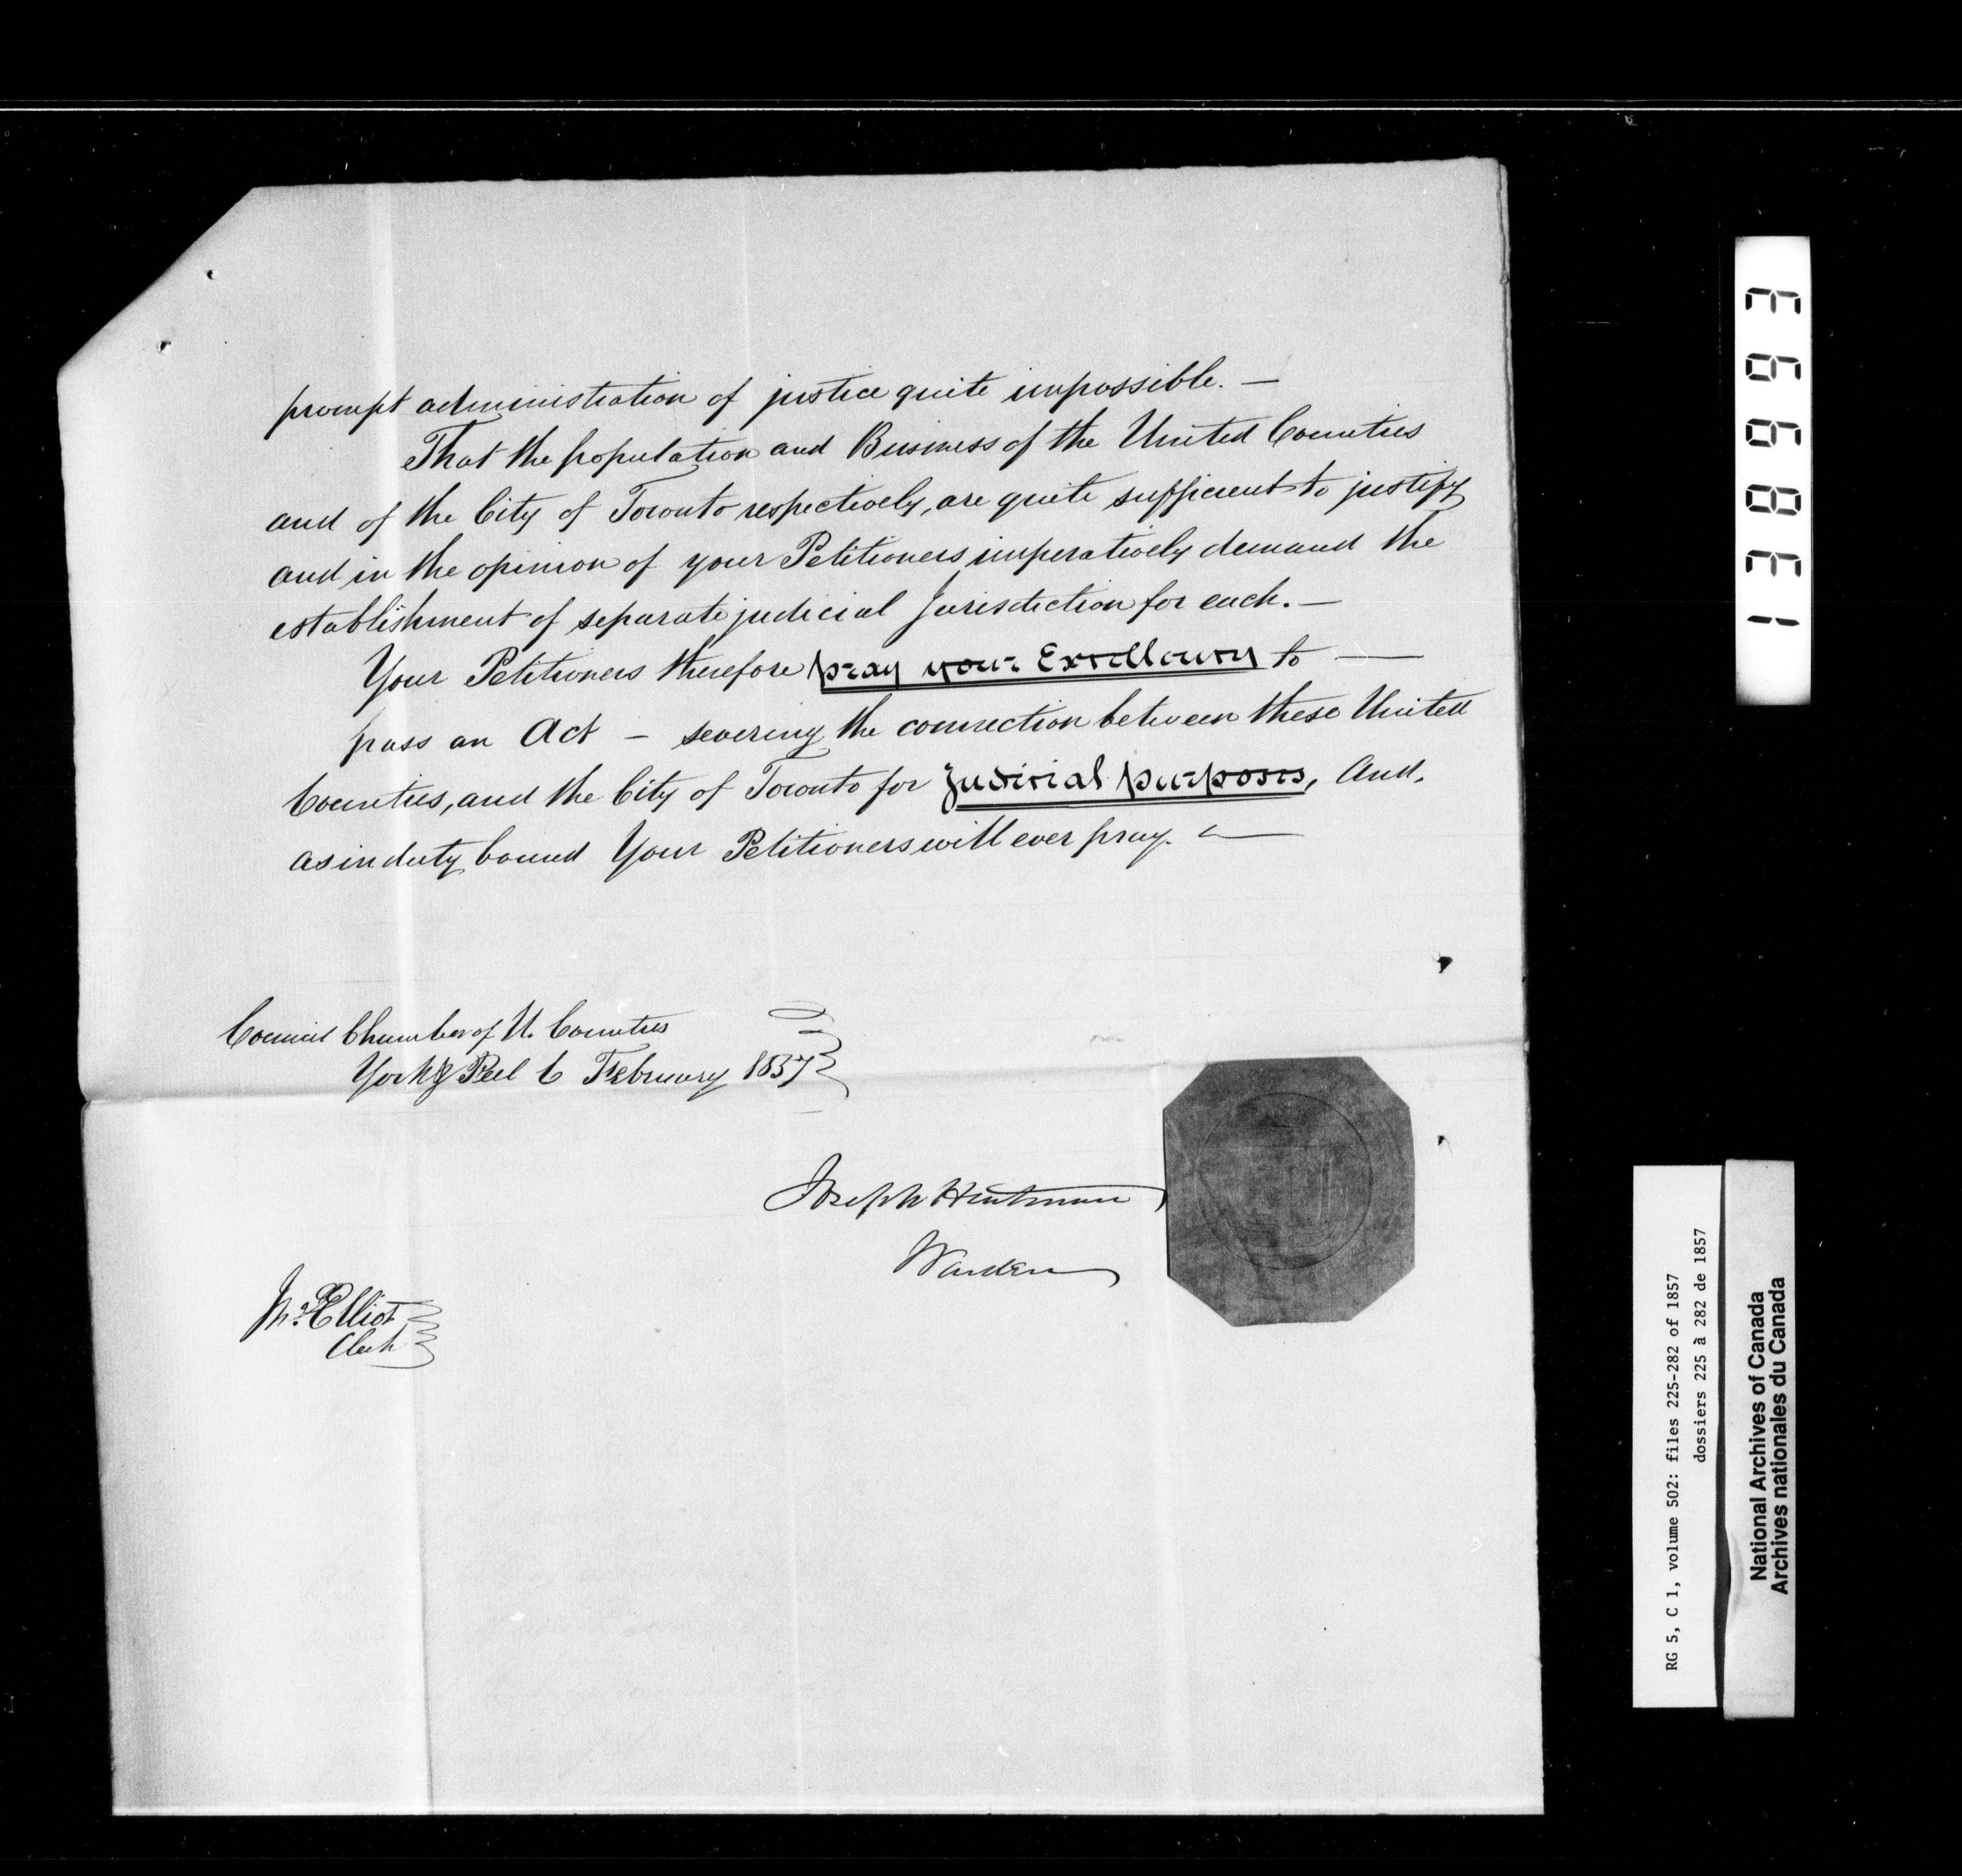 prompt administration of justice quite impossible. —
That the population and Business of the United Counties
and of the City of Toronto respectively, are quite sufficient to justify
and in the opinion of your Petitioners imperatively demand the
establishment of separate judicial Jurisdiction for each. —
Your Petitioners therefore pray your Excellency to —
pass an Act — severing the connection between these United
Counties, and the City of Toronto for Judicial purposes, And,
as in duty bound Your Petitioners will ever pray. —
Council Chamber of U. Counties
York & Peel 6 February 1857
Joseph Hartman
Warden
Jno. Elliot
Clerk
138693
RG 5, C 1, volume 502: files 225-282 of 1857
dossiers 225 à 282 de 1857
National Archives of Canada
Archives nationales du Canada